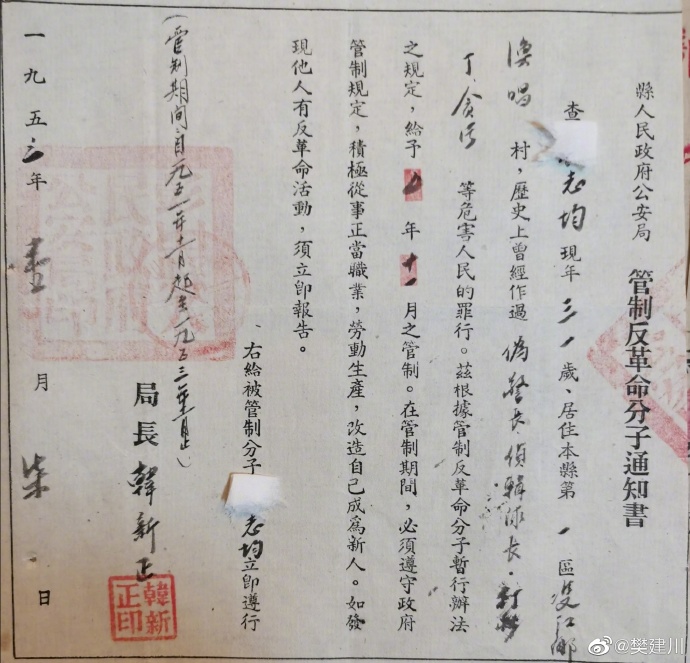 縣人民政府公安局 管制反革命分子通知書
查 志均 現年 三一 歲、居住本縣第 一 區
村,歷史上曾經作過 偽警長偵緝隊長·
貪污 等危害人民的罪行。茲根據管制反革命分子暫行辦法
之規定,給予 年 十一 月之管制。在管制期間,必須遵守政府
管制規定,積極從事正當職業,勞動生產,改造自己成爲新人。如發
現他人有反革命活動,須立卽報告。
右給被管制分子 志均 立卽遵行
局長 韓新正
韓新正印
(管制期間自一九五 年 月起至一九五三年 月止)
一九五三年 壹 月 柒 日
@樊建川